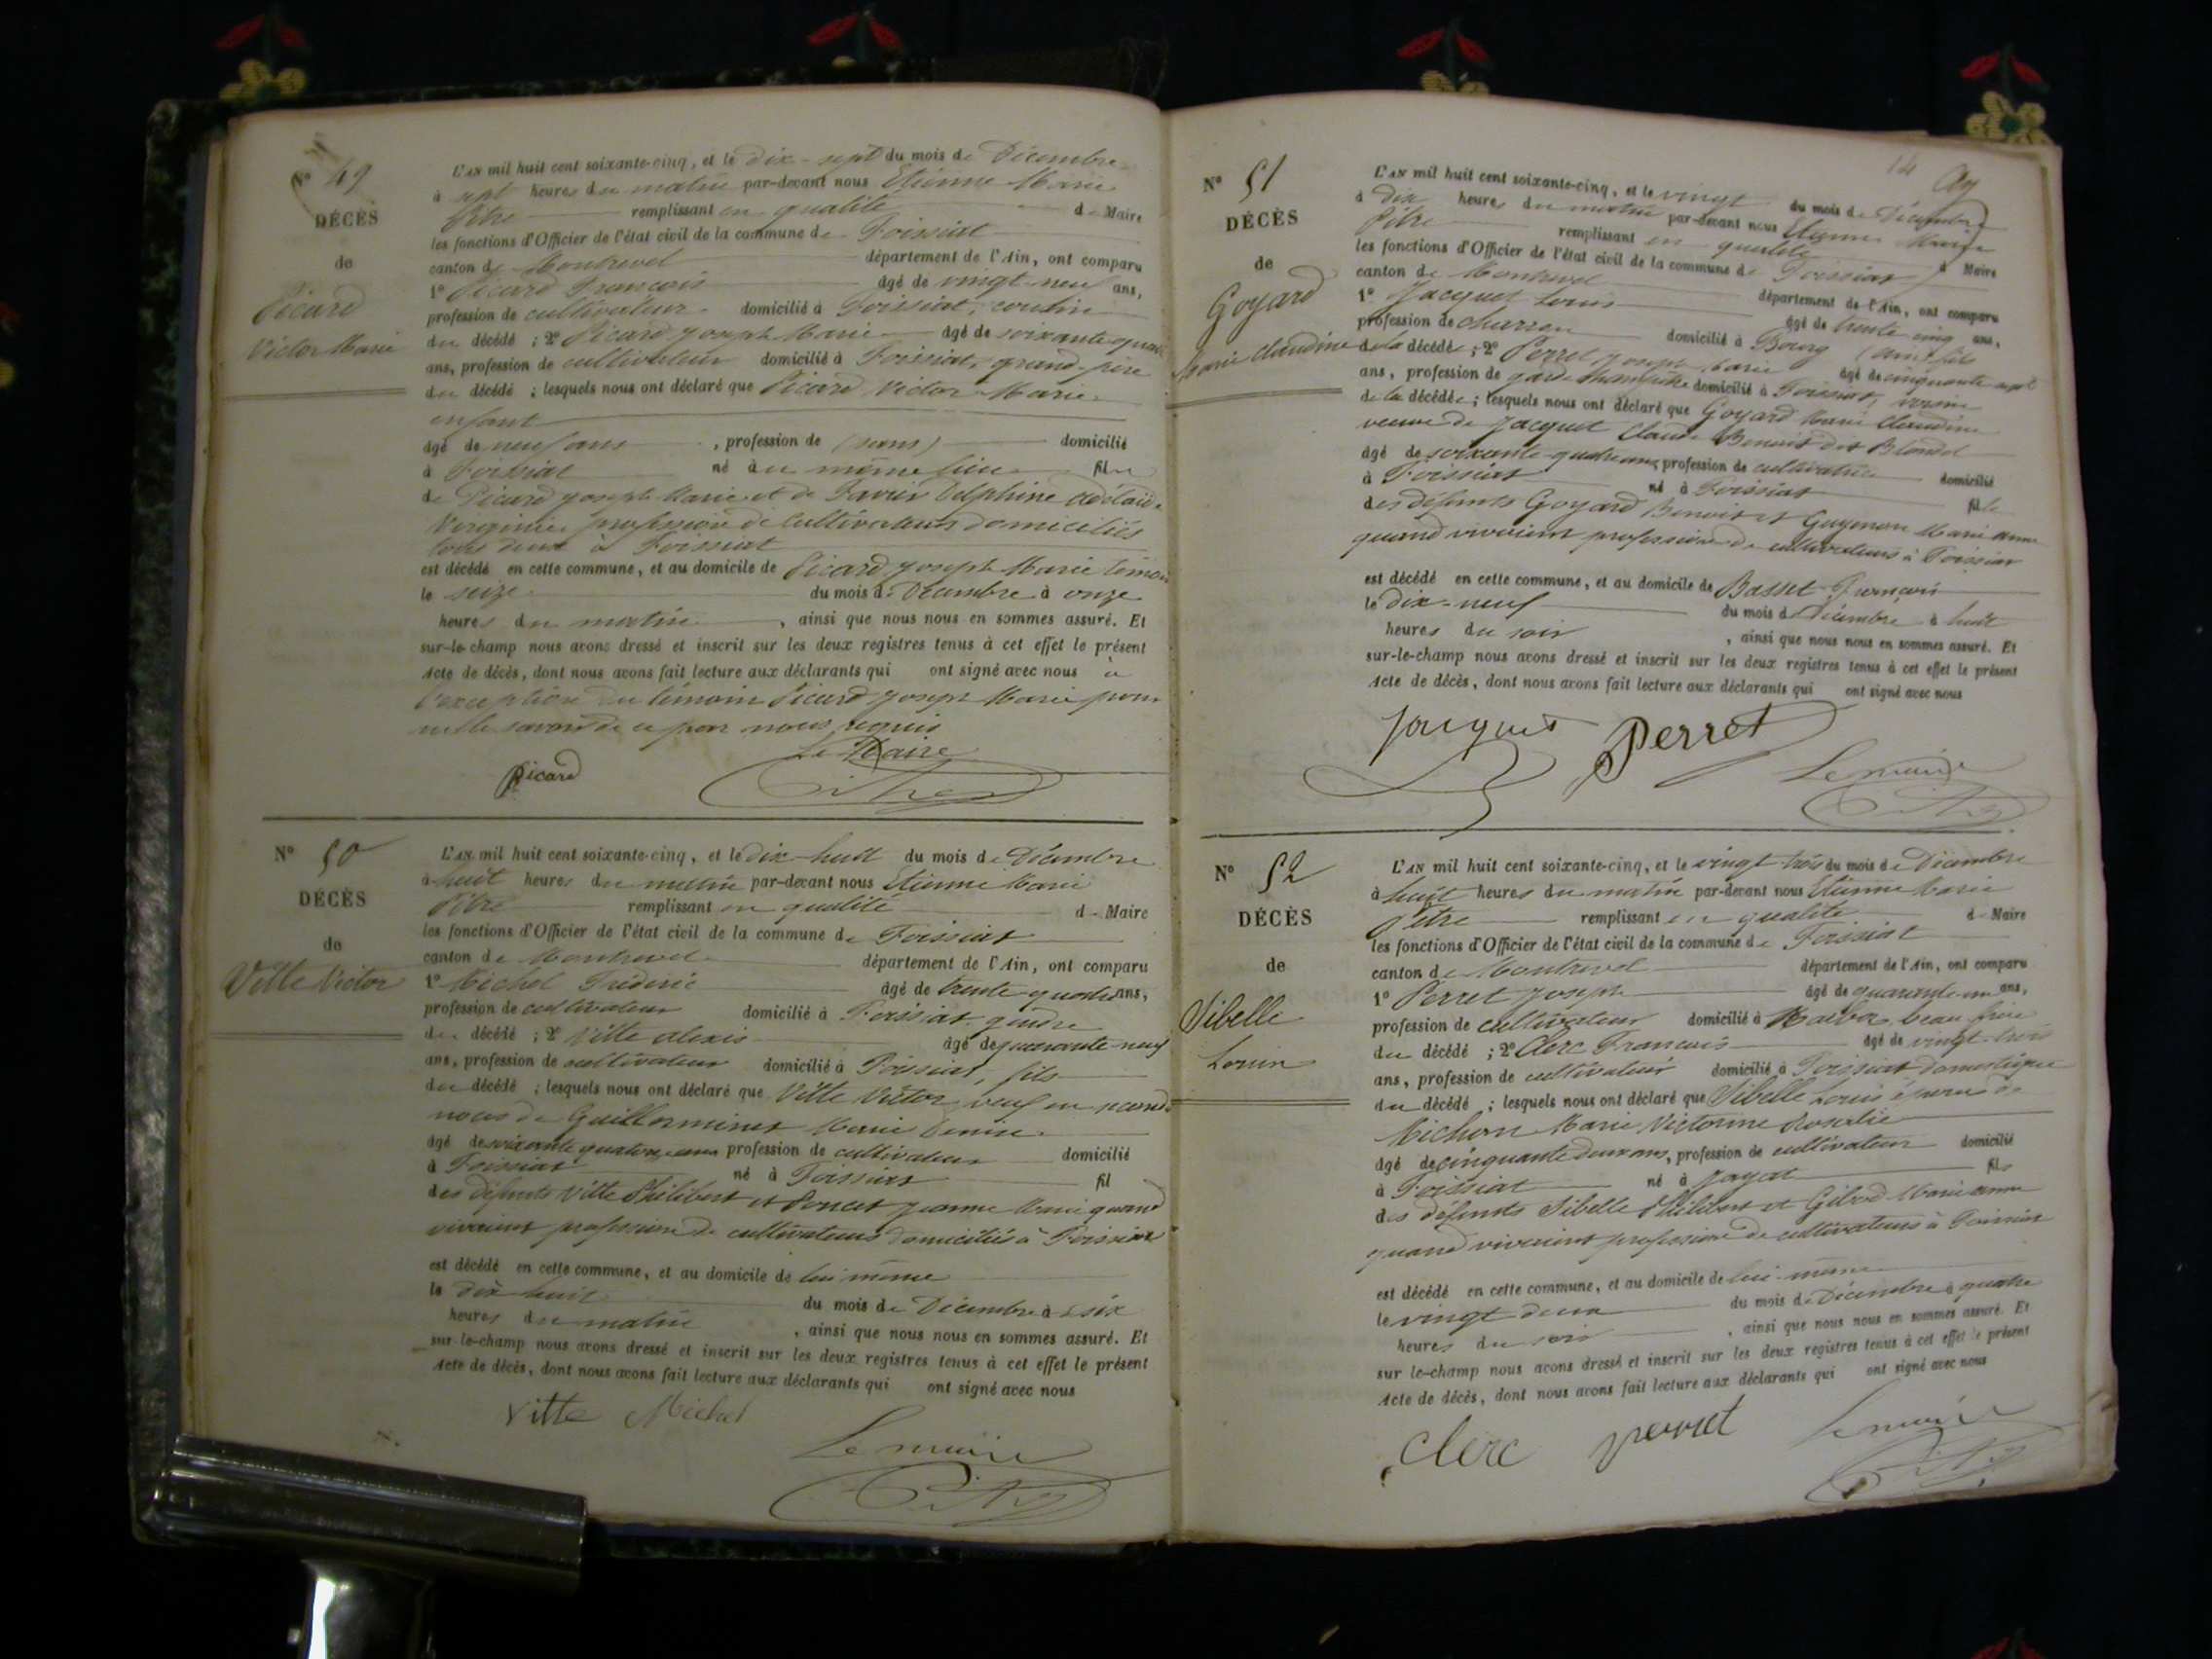 N° 49
DÉCÈS
de
Picard
Victor Marie
L'AN mil huit cent soixante-cinq, et le dix-sept du mois de Décembre
à sept heures du matin par-devant nous Etienne Marie
Pitre remplissant en qualité de Maire
les fonctions d'Officier de l'état civil de la commune de Foissiat
canton de Montrevel département de l'Ain, ont comparu
1° Picard François âgé de vingt-neuf ans,
profession de cultivateur domicilié à Foissiat, cousin
du décédé ; 2° Picard Joseph Marie âgé de soixante quatre
ans, profession de cultivateur domicilié à Foissiat, grand-père
du décédé ; lesquels nous ont déclaré que Picard Victor Marie
enfant
âgé de neuf ans , profession de (sans) domicilié
à Foissiat né à u même lieu fils
de Picard Joseph Marie et de Favier Delphine Adélaïde
Virginie profession de cultivateurs domiciliés
tous deux à Foissiat
est décédé en cette commune, et au domicile de Picard Joseph Marie témoin
le seize du mois de Décembre à onze
heures du matin , ainsi que nous nous en sommes assuré. Et
sur-le-champ nous avons dressé et inscrit sur les deux registres tenus à cet effet le présent
Acte de décès, dont nous avons fait lecture aux déclarants qui ont signé avec nous à
l'exception du témoin Picard Joseph Marie pour
ne le savoir de ce par nous requis
Le Maire
Picard Pitre
N° 50
DÉCÈS
de
Vitte Victor
L'AN mil huit cent soixante-cinq, et le dix-huit du mois de Décembre
à huit heures du matin par-devant nous Etienne Marie
Pitre remplissant en qualité de Maire
les fonctions d'Officier de l'état civil de la commune de Foissiat
canton de Montrevel département de l'Ain, ont comparu
1° Michel Frédéric âgé de trente quatre ans,
profession de cultivateur domicilié à Foissiat gendre
du décédé ; 2° Vitte Alexis âgé de quarante neuf
ans, profession de cultivateur domicilié à Foissiat, fils
du décédé ; lesquels nous ont déclaré que Vitte Victor veuf en secondes
noces de Guillerminet Marie Denise
âgé de soixante quatorze ans profession de cultivateur domicilié
à Foissiat né à Foissiat fil
des défunts Vitte Philibert et Poncet Jeanne Marie quand
vivaient profession de cultivateurs domiciliés à Foissiat
est décédé en cette commune, et au domicile de lui même
le dix huit du mois de Décembre à six
heures du matin , ainsi que nous nous en sommes assuré. Et
sur-le-champ nous avons dressé et inscrit sur les deux registres tenus à cet effet le présent
Acte de décès, dont nous avons fait lecture aux déclarants qui ont signé avec nous
Vitte Michel
Le maire
Pitre
14
N° 51
DÉCÈS
de
Goyard
Marie Claudine
L'AN mil huit cent soixante-cinq, et le vingt du mois de Décembre
à dix heures du matin par-devant nous Etienne Marie
Pitre remplissant en qualité de Maire
les fonctions d'Officier de l'état civil de la commune de Foissiat
canton de Montrevel département de l'Ain, ont comparu
1° Jacquet Louis âgé de trente cinq ans,
profession de charron domicilié à Bourg fils
de la décédé ; 2° Perret Joseph Marie âgé de cinquante sept
ans, profession de garde champêtre domicilié à Foissiat, voisin
de la décédée ; lesquels nous ont déclaré que Goyard Marie Claudine
veuve de Jacquet Claude Benoit dit Blondel
âgé de soixante quatre ans profession de cultivatrice domicilié
à Foissiat né à Foissiat fille
des défunts Goyard Benoit et Guyenon Marie Anne
quand vivaient profession de cultivateurs à Foissiat
est décédé en cette commune, et au domicile de Basset François
le dix-neuf du mois de Décembre à huit
heures du soir , ainsi que nous nous en sommes assuré. Et
sur-le-champ nous avons dressé et inscrit sur les deux registres tenus à cet effet le présent
Acte de décès, dont nous avons fait lecture aux déclarants qui ont signé avec nous
Jacquet Perret
Le maire
Pitre
N° 52
DÉCÈS
de
Sibelle
Louis
L'AN mil huit cent soixante-cinq, et le vingt trois du mois de Décembre
à huit heures du matin par-devant nous Etienne Marie
Pitre remplissant en qualité de Maire
les fonctions d'Officier de l'état civil de la commune de Foissiat
canton de Montrevel département de l'Ain, ont comparu
1° Perret Joseph âgé de quarante-un ans,
profession de cultivateur domicilié à Marboz beau frère
du décédé ; 2° Clerc François âgé de vingt-trois
ans, profession de cultivateur domicilié à Foissiat domestique
du décédé ; lesquels nous ont déclaré que Sibelle Louis époux de
Michon Marie Victorine Rosalie
âgé de cinquante deux ans, profession de cultivateur domicilié
à Foissiat né à Jayat fils
des défunts Sibelle Philibert et Gibod Marie Anne
quand vivaient profession de cultivateurs à Foissiat
est décédé en cette commune, et au domicile de lui-même
le vingt deux du mois de Décembre à quatre
heures du soir , ainsi que nous nous en sommes assuré. Et
sur le-champ nous avons dressé et inscrit sur les deux registres tenus à cet effet le présent
Acte de décès, dont nous avons fait lecture aux déclarants qui ont signé avec nous
Clerc perret Le maire
Pitre